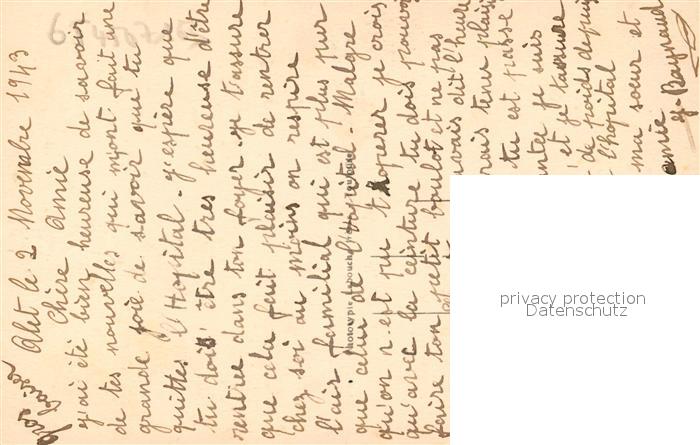 Alet le 2 Novembre 1943
Chère Amie
j'ai été bien heureuse de savoir
de tes nouvelles qui m'ont fait une
grande joie de savoir que tu
quittes l'Hopital - j'espère que
tu dois être très heureuse d'être
rentrée dans ton foyer. je t'assure
que cela fait plaisir de rentrer
chez soi au moins on respire
l'air familial qui est plus pur
que celui de l'hopital - Malgré
qu'on n est pu t'operer je crois
qu'avec la ceinture tu dois pouvoir
faire ton petit boulot et ne pas
avais dit l'heure
rais tenu plaisi
tu est passé
nte je suis
et je t'assure
de poids depuis
l'hopital
ma sœur et
amie
Phototypie Labouche Frères Toulouse
privacy protection
Datenschutz